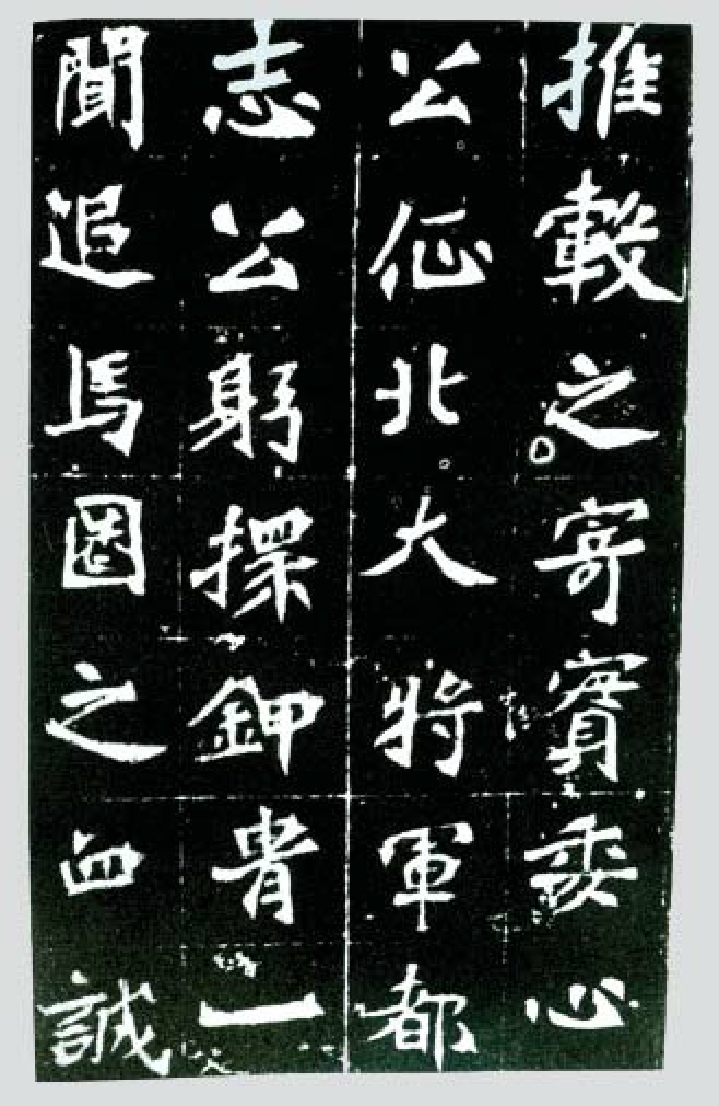 推轂之寄實委心
公征北大將軍都
志公躬擐鉀胄一
聞追馬圈之血誠